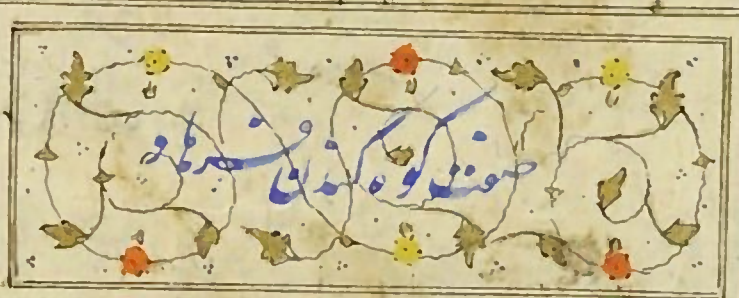 صفت کوه کندن فرهاد